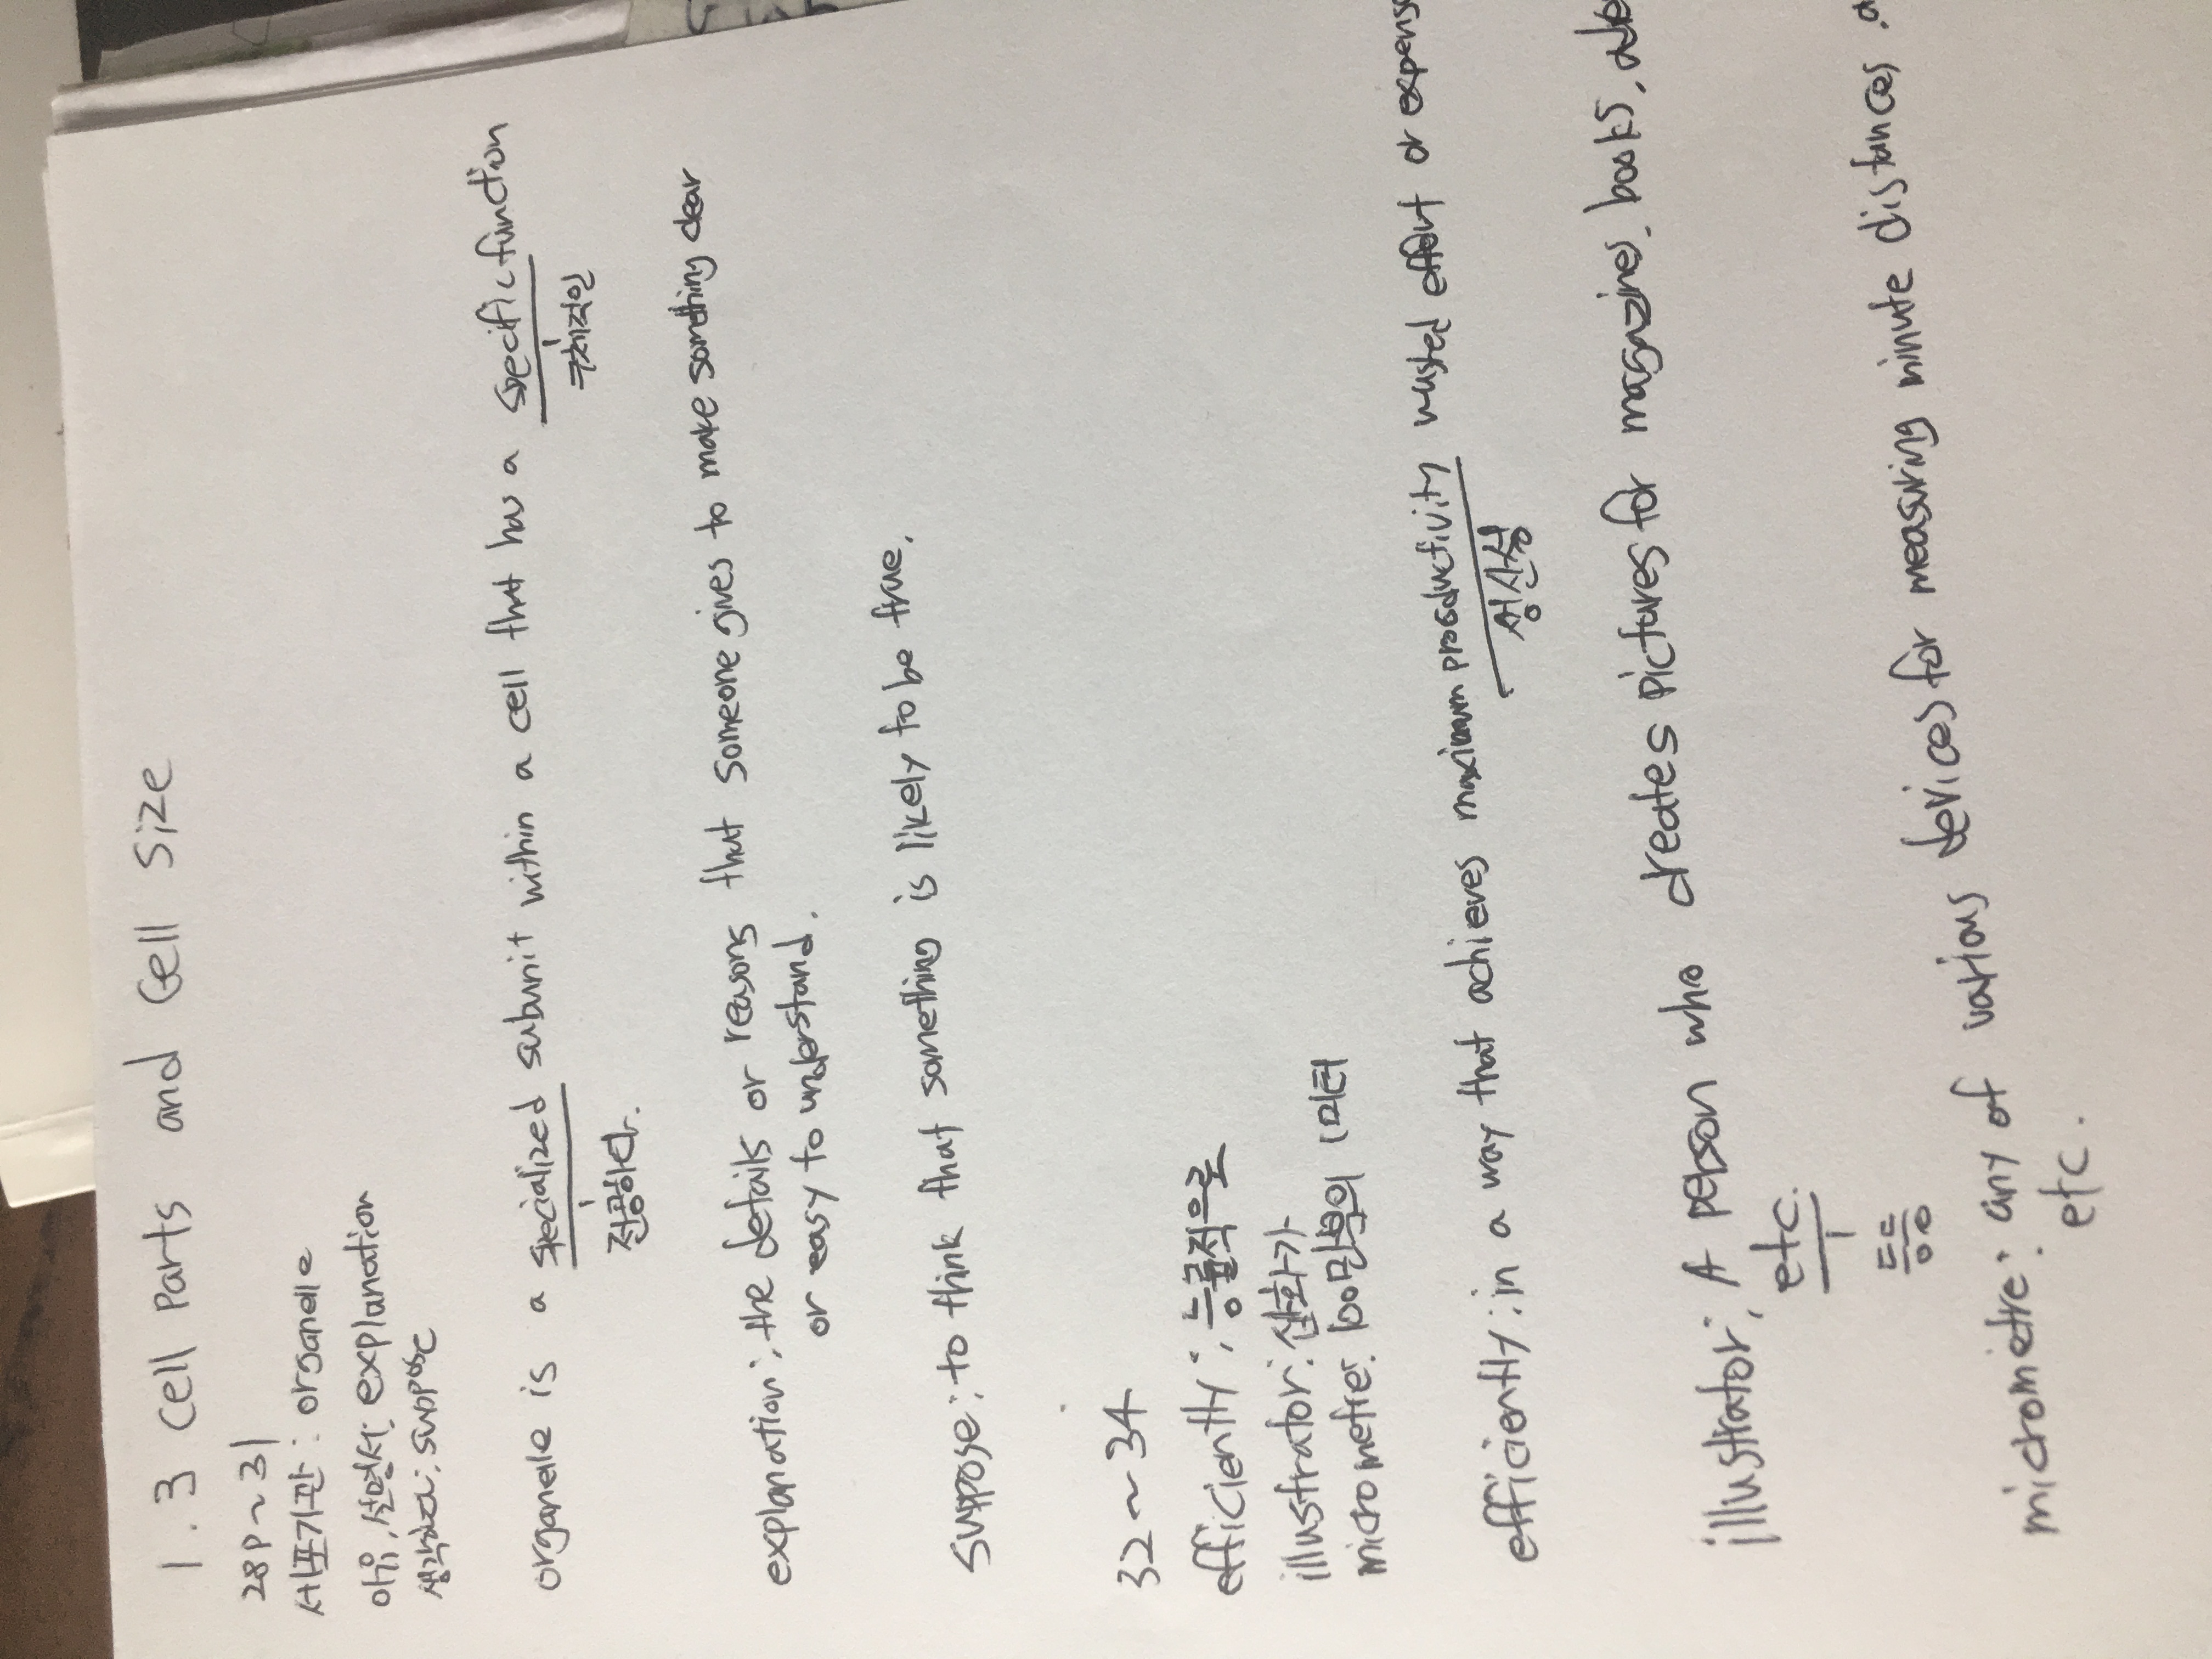 1.3 Cell Parts and Cell Size
28P ~ 31
세포기관 : organelle
이유, 설명서: explanation
생각하다: suppose
organelle is a specialized subunit within a cell that has a specific function
전공하다. 구체적인
explanation: the details or reasons that someone gives to make something clear
or easy to understand.
suppose: to think that something is likely to be true.
32 ~ 34
efficiently: 능률적으로
illustrator: 삽화가
micrometre: 100만분의 1미터
efficiently: in a way that achieves maximum productivity wasted effort or expense
생산성
illustrator: A person who creates pictures for magazines, books,
etc.
등등
micrometre: any of various devices for measuring minute distances
etc.